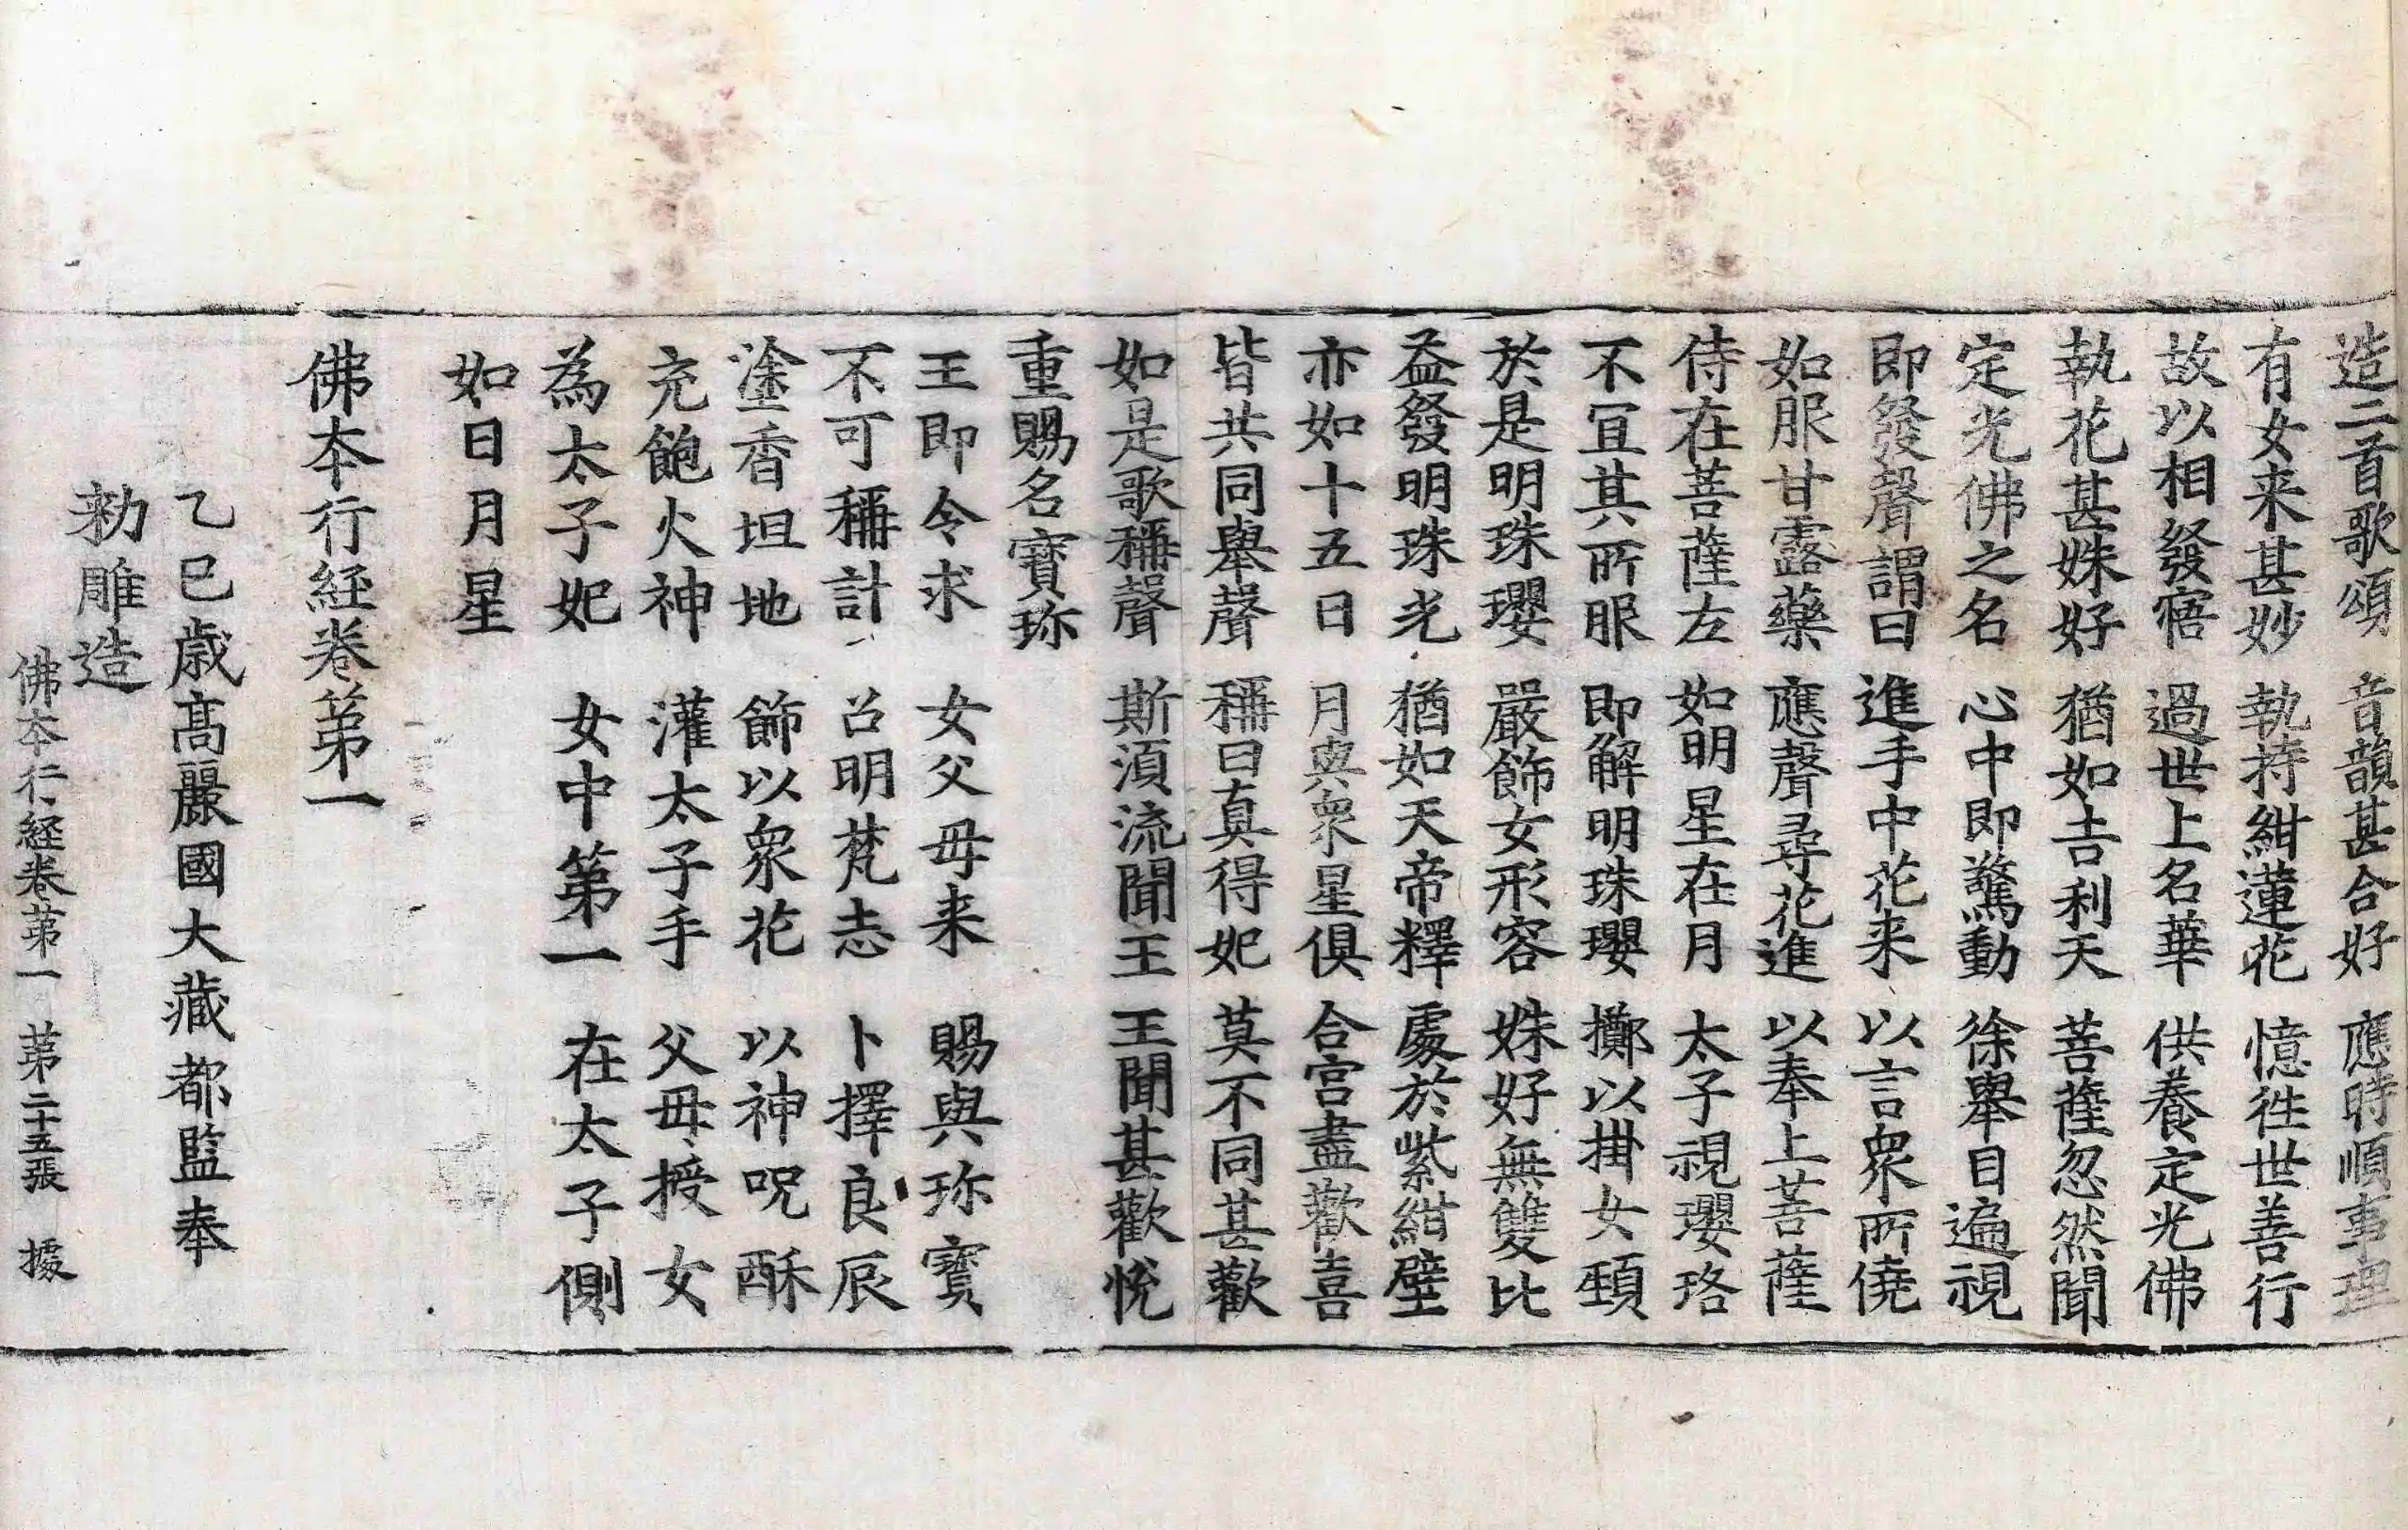 造二首歌頌 音韻甚合好 應時順事理
有女来甚妙 執持紺蓮花 憶徃世善行
故以相發寤 過世上名華 供養定光佛
執花甚姝好 猶如吉利天 菩薩忽然聞
定光佛之名 心中即驚動 徐舉目遍視
即發聲謂曰 進手中花来 以言衆所僥
如服甘露藥 應聲尋花進 以奉上菩薩
侍在菩薩左 如明星在月 太子視瓔珞
不冝其所服 即解明珠瓔 擲以掛女頸
於是明珠瓔 嚴飾女形容 姝好無雙比
益發明珠光 猶如天帝釋 處於紫紺壁
亦如十五日 月與衆星俱 合宮盡歡喜
皆共同舉聲 稱曰真得妃 莫不同甚歡
如是歌稱聲 斯湏流聞王 王聞甚歡悅
重賜名寶珎
王即令求 女父母来 賜與珎寶
不可稱計 召明梵志 卜擇良辰
塗香坦地 飾以衆花 以神呪酥
充飽火神 灌太子手 父母授女
為太子妃 女中第一 在太子側
如日月星
佛本行經卷第一
乙巳歲高麗國大藏都監奉
勑雕造
佛本行經卷第一 第二十五張 據